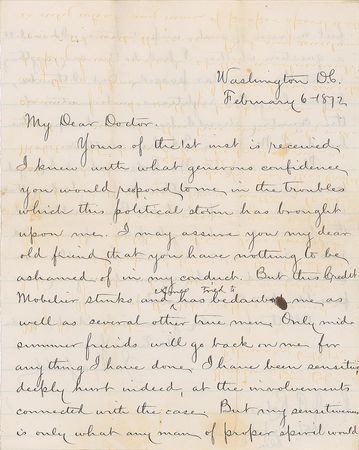 Washington D.C.
February 6-1872
My Dear Doctor.
Yours of the 1st inst is received,
I knew with what generous confidence
you would respond to me, in the troubles
which this political storm has brought
upon me. I may assure you my dear
old friend that you have nothing to be
ashamed of in my conduct. But this Credit
Mobelier stinks and has tried to bedaub me as
well as several other true men, Only mid
summer friends will go back on me for
any thing I have done, I have been sensitive,
deeply hurt indeed, at the involvements
connected with the case. But my sensitiveness
is only what any man of proper spirit would